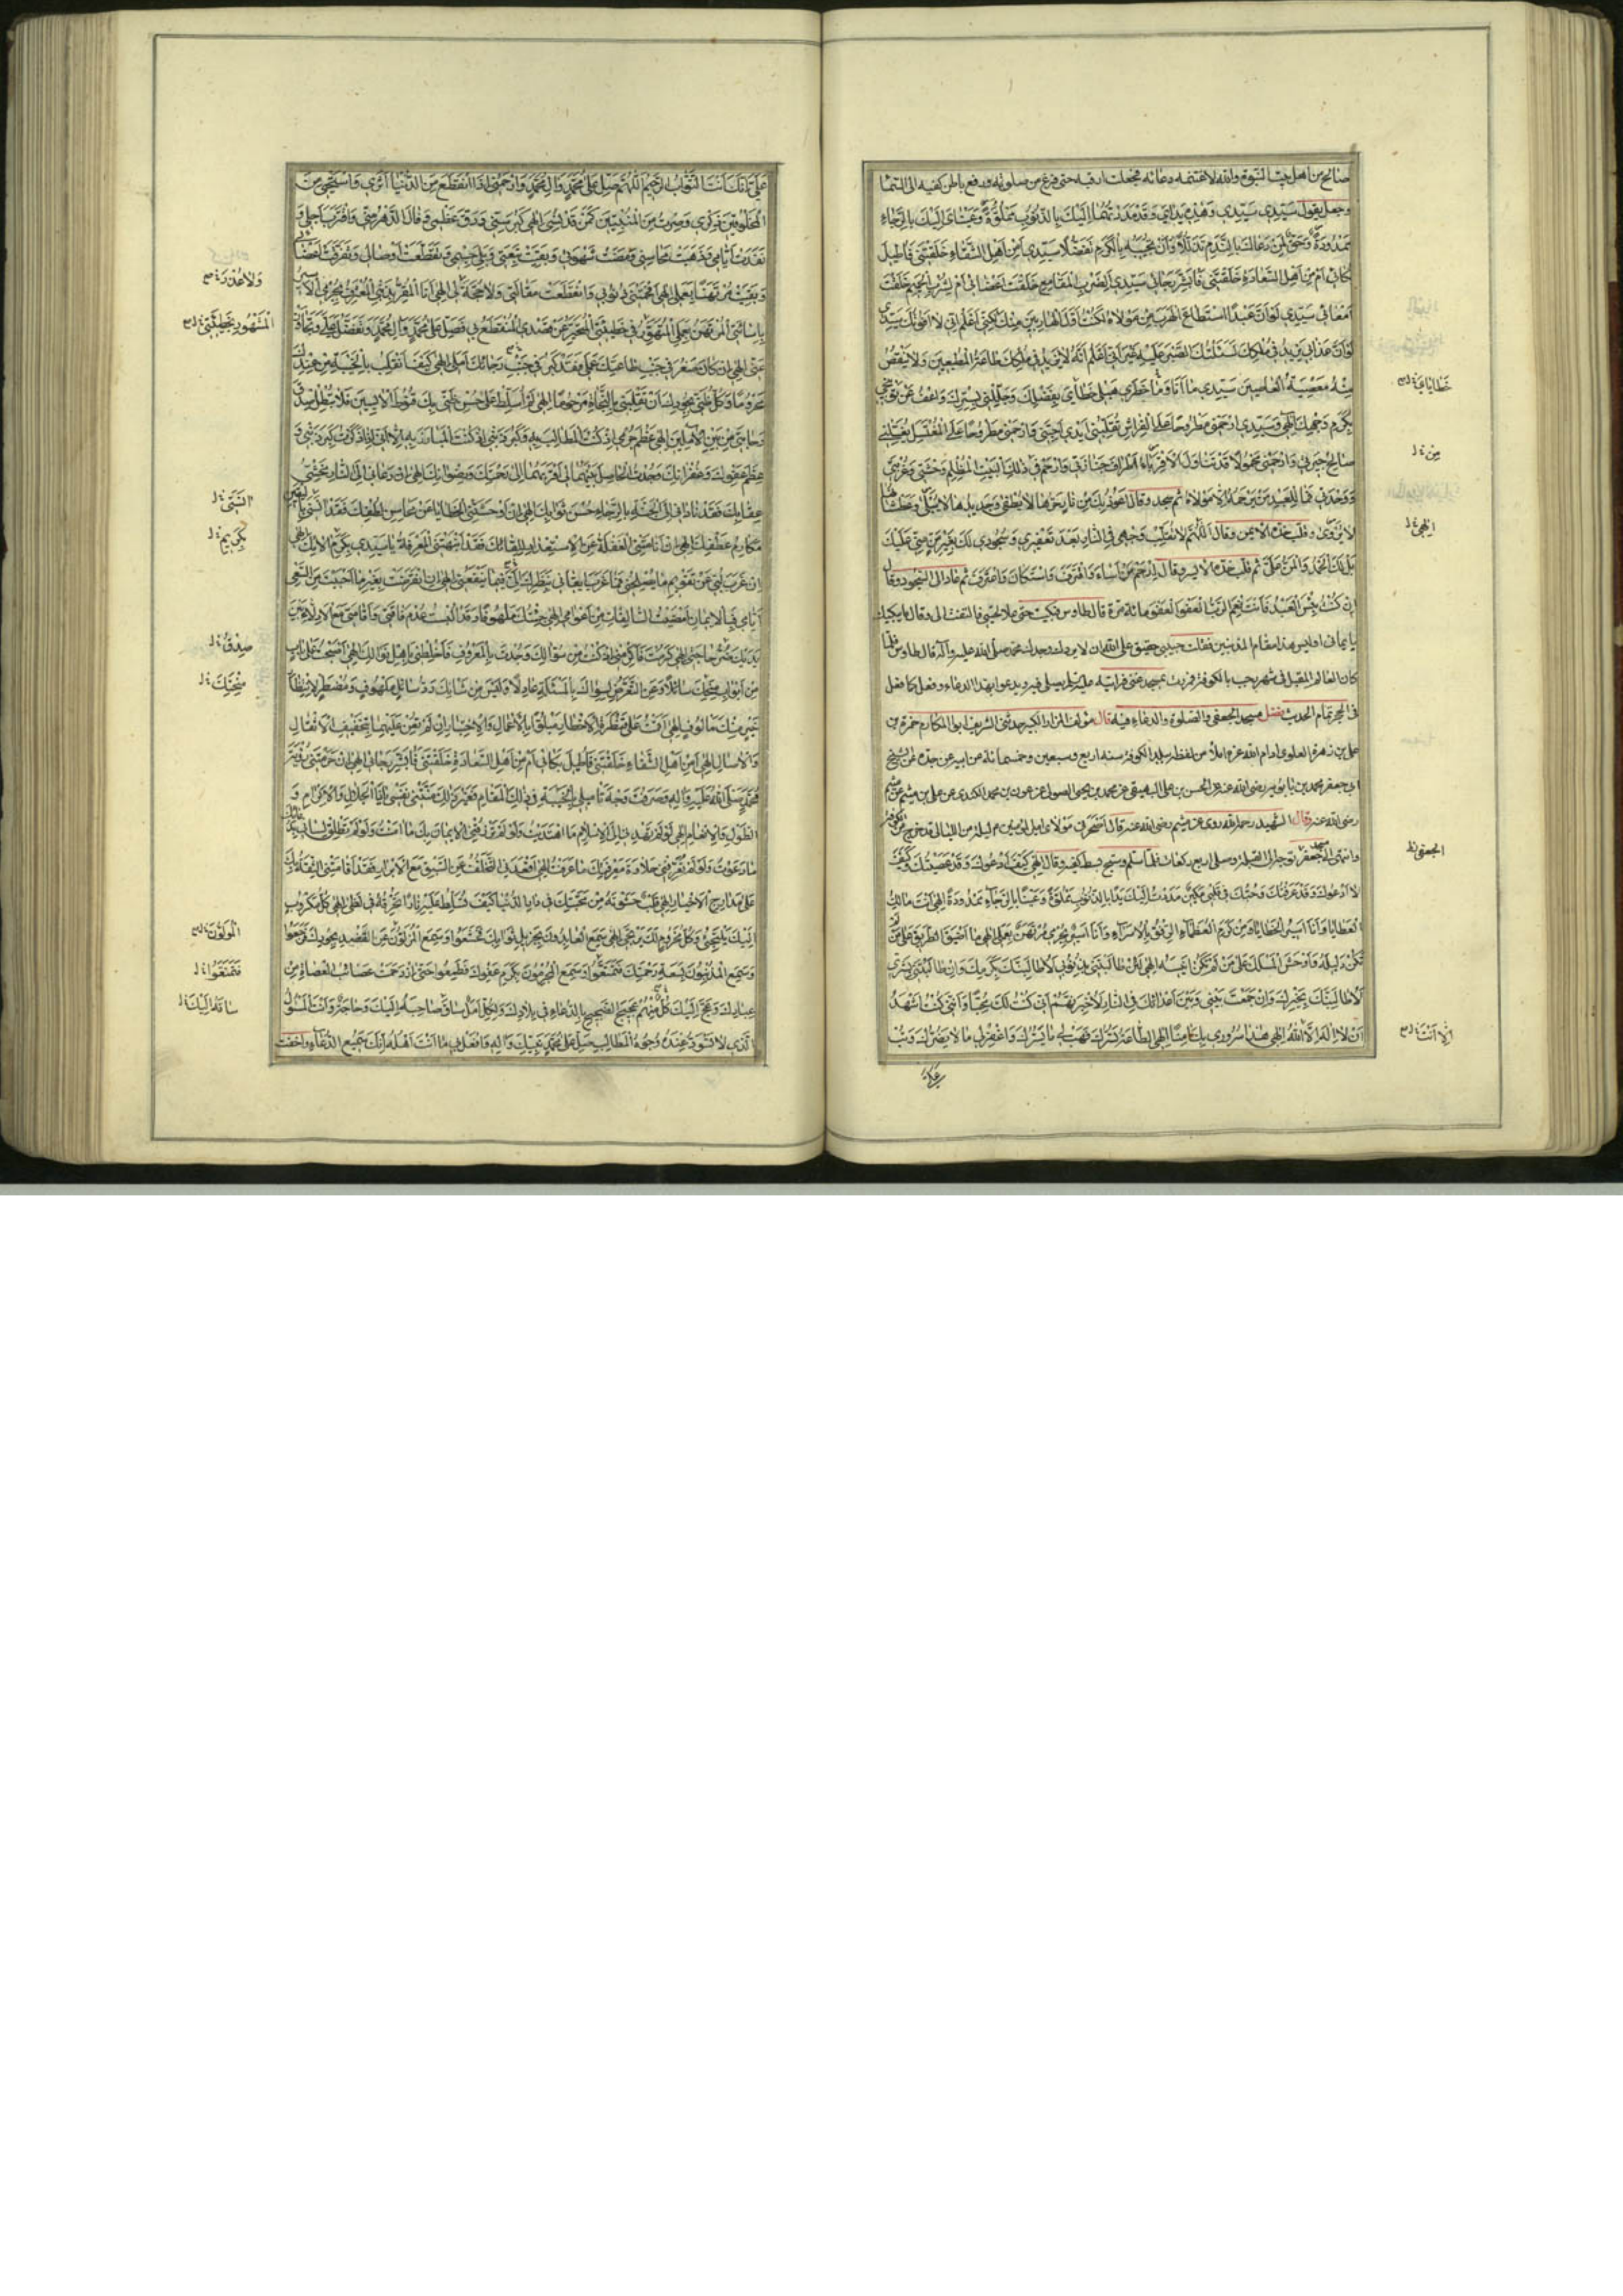 صالح من اهل بيت النبوة والله لاغتنمه دعائه فجعلت ارقبه حتى فرغ من صلوته ورفع باطن كفيه الى السماء
وجعل يقول سيدي سيدي وهذه يداي وقد مددتهما اليك بالذنوب مملوة وعيناي اليك بالرجاء
ممدودة وحق لمن دعاك بالندم تذللا وان تجيبه بالكرم تفضلا سيدي امن اهل الشقاء خلقتني فاطيل
بكائي ام من اهل السعادة خلقتني فابشر رجائي سيدي الضرب المقامع خلقت اعضائي ام لشرب الحميم خلقت
امعائي سيدي لو ان عبدا استطاع الهرب من مولاه لكنت اول الهاربين منك لكني اعلم اني لا افوتك سيدي
لو ان عذابي يزيد في ملكك لسئلتك الصبر عليه غير اني اعلم انه لا يزيد في ملكك طاعة المطيعين ولا ينقص
منه معصية العاصين سيدي ما انا وما خطري هب لي خطاياي بفضلك وجللني بسترك واعف عن توبيخي
بكرم وجهك الهي وسيدي ارحمني مطروحا على الفراش تقلبني ايدي احبتي وارحمني مطروحا على المغتسل يغسلني
صالح جيرتي وارحمني محمولا قد تناول الاقرباء اطراف جنازتي وارحم في ذلك البيت المظلم وحشتي وغربتي
ووحدتي فما للعبد من يرحمه الا مولاه ثم سجد وقال اعوذ بك من نار حرها لا يطفى وجديدها لا يبلى وعطشانها
لا يروى وقلب خده الايمن وقال اللهم لا تقلب وجهي في النار بعد تعفيري وسجودي لك بغير من مني عليك
بل لك الحمد والمن علي ثم قلب خده الايسر وقال ارحم من اساء واقترف واستكان واعترف ثم عاد الى السجود وقال
ان كنت بئس العبد فانت نعم الرب العفو العفو مائة مرة قال طاوس فبكيت حتى علا نحيبي فالتفت الي وقال ما يبكيك
يا يماني اوليس هذا مقام المذنبين فقلت حبيبي حقيق على الله ان لا يردك وجدك محمد صلى الله عليه وآله قال طاوس فلما
كان العام المقبل في شهر رجب بالكوفة فمررت بمسجد غني فرايته عليه السلام يصلي فيه ويدعو بهذا الدعاء وفعل كما فعل
في الحجر تمام الحديث فصل مسجد الجعفي والصلوة والدعاء فيه قال مؤلف المزار الكبير حدثني الشريف ابو المكارم حمزة بن
علي بن زهرة العلوي ادام الله عزه املاء من لفظه ببلد الكوفة سنة اربع وسبعين وخمسمائة عن ابيه عن جده عن الشيخ
ابي جعفر محمد بن بابويه رضي الله عنه عن الحسن بن علي البيهقي عن محمد بن يحيى الصولي عن عون بن محمد الكندي عن علي بن ميثم عن ميثم
رضي الله عنه وقال الشهيد رحمه الله روي عن ميثم رضي الله عنه قال اصحر بي مولاي امير المؤمنين ع ليلة من الليالي قد خرج من الكوفة
وانتهى الى مسجد جعفر توجه الى القبلة وصلى اربع ركعات فلما سلم وسبح بسط كفيه وقال الهي كيف ادعوك وقد عصيتك وكيف
لا ادعوك وقد عرفتك وحبك في قلبي مكين مددت اليك يدا بالذنوب مملوة وعينا بالرجاء ممدودة الهي انت مالك
العطايا وانا اسير الخطايا ومن كرم العظماء الرفق بالاسراء وانا اسير بجرمي مرتهن بعملي الهي ما اضيق الطريق على من لم
تكن دليله واوحش المسلك على من لم تكن انيسه الهي لئن طالبتني بذنوبي لاطالبنك بعفوك وان طالبتني بسريرتي
لاطالبنك بكرمك وان جمعت بيني وبين اعدائك في النار لاخبرنهم اني كنت لك محبا وانني كنت اشهد
ان لا اله الا الله الهي هذا سروري بك خائفا الهي الطاعة تسرك فهب لي ما يسرك واغفر لي ما لا يضرك وتب
خطاياي
من
الهي
الجعفي
الا انت
علي انك انت التواب الرحيم اللهم صل على محمد وال محمد وارحمني اذا انقطع من الدنيا اثري وامتحى من
المخلوقين ذكري وصرت من المنسيين كمن قد نسي الهي كبر سني ودق عظمي ونال الدهر مني واقترب اجلي و
نفدت ايامي وذهبت محاسني ومضت شهوتي وبقيت تبعتي وبلي جسمي وتقطعت اوصالي وتفرقت اعضائي
وبقيت مرتهنا بعملي الهي افحمتني ذنوبي وانقطعت مقالتي ولا حجة لي الهي انا المقر بذنبي المعترف بجرمي الاسير
باسائتي المرتهن بعملي المتهور في خطيئتي المتحير عن قصدي المنقطع بي فصل على محمد وال محمد وتفضل علي وتجاوز
عني الهي ان كان صغر في جنب طاعتك عملي فقد كبر في جنب رجائك املي الهي كيف انقلب بالخيبة من عندك
محروما وكل ظني بجودك ان تقلبني بالنجاة مرحوما الهي لم اسلط على حسن ظني بك قنوط الايسين فلا تبطل صدق
رجائي من بين الاملين الهي عظم جرمي اذ كنت المطالب به وكبر ذنبي اذ كنت المبارز به الا اني اذا ذكرت كبر ذنبي و
عظم عفوك وغفرانك وجدت الحاصل بينهما لي اقربهما الى رحمتك ورضوانك الهي ان دعاني الى النار مخشي
عقابك فقد ناداني الى الجنة بالرجاء حسن ثوابك الهي ان اوحشتني الخطايا عن محاسن لطفك فقد انستني باليقين
مكارم عطفك الهي ان انامتني الغفلة عن الاستعداد للقائك فقد انبهتني المعرفة يا سيدي بكرم الائك الهي
ان عزب لبي عن تقويم ما يصلحني فما عزب ايقاني بنظرك الي فيما ينفعني الهي ان انقرضت بغير ما احببت من السعي
ايامي فبالايمان امضيت السالفات من اعوامي الهي جئتك ملهوفا وقد البست عدم فاقتي واقامني مع الاذلاء بين
يديك ضر حاجتي الهي كرمت فاكرمني اذ كنت من سؤالك وجدت بالمعروف فاخلطني باهل نوالك الهي اصبحت على باب
من ابواب منحك سائلا وعن التعرض لسواك بالمسئلة عادلا وليس من شانك رد سائل ملهوف ومضطر لانتظار
خير منك مالوف الهي اقمت على قنطرة الاخطار مبلوا بالاعمال والاختبار ان لم تعن عليهما بتخفيف الاثقال
والاصار الهي امن اهل الشقاء خلقتني فاطيل بكائي ام من اهل السعادة خلقتني فابشر رجائي الهي ان حرمتني رؤية
محمد صلى الله عليه واله وصرفت وجه تاميلي بالخيبة في ذلك المقام فغير ذلك منتني نفسي يا ذا الجلال والاكرام و
الطول والانعام الهي لو لم تهدني الى الاسلام ما اهتديت ولو لم ترزقني الايمان بك ما امنت ولو لم تطلق لساني بدعائك
ما دعوت ولو لم تعرفني حلاوة معرفتك ما عرفت الهي ان اقعدني التخلف عن السبق مع الابرار فقد اقامتني الثقة بك
على مدارج الاخيار الهي قلب حشوته من محبتك في دار الدنيا كيف تسلط عليه نارا تحرقه في لظى الهي كل مكروب
اليك يلتجئ وكل محزون لك يرتجي الهي سمع العابدون بجزيل ثوابك فخشعوا وسمع المزلون عن القصد بجودك فرجعوا
وسمع المذنبون بسعة رحمتك فتمتعوا وسمع المجرمون بكرم عفوك فطمعوا حتى ازدحمت عصائب العصاة من
عبادك وعج اليك كل منهم عجيج الضجيج بالدعاء في بلادك ولكل امل ساق صاحبه اليك وحاجة وانت المسؤل
الذي لا تسود عنده وجوه المطالب صل على محمد نبيك واله وافعل بي ما انت اهله انك سميع الدعاء واخفت
ولا عذر
المتهور بخطيئتي
النبي
بكريم
صدق
منحك
المولون
فتمتعوا
ساقه اليك